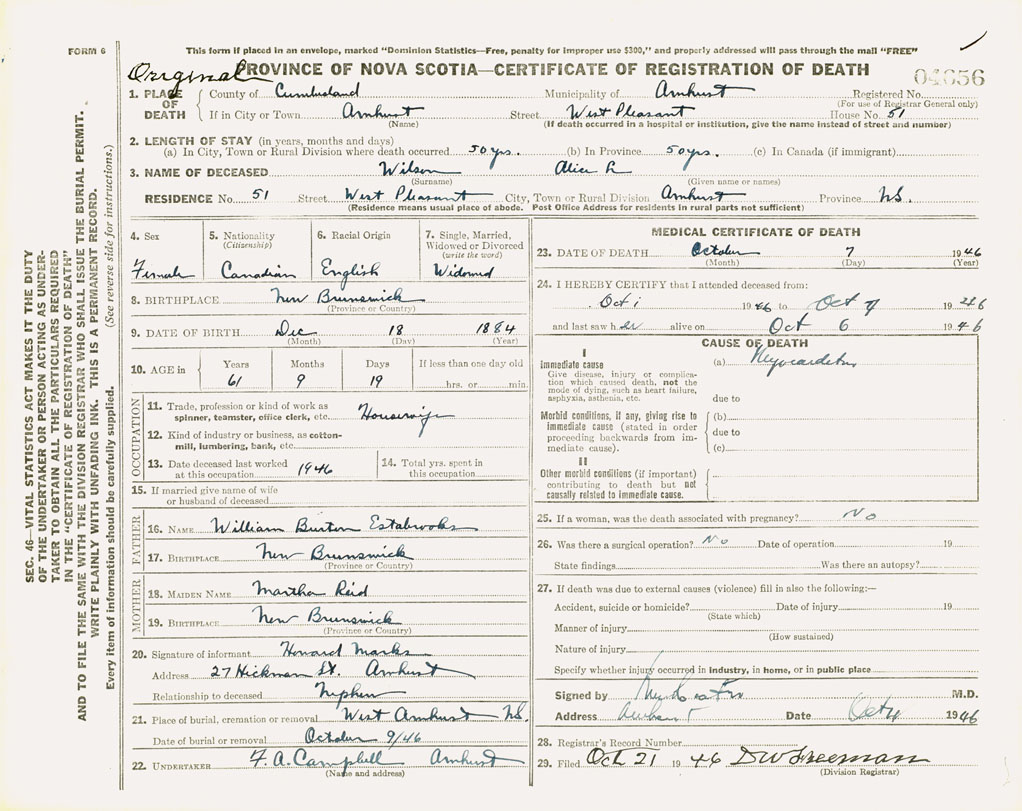 FORM 6
This form if placed in an envelope, marked "Dominion Statistics—Free, penalty for improper use $300," and properly addressed will pass through the mail "FREE"
Original
PROVINCE OF NOVA SCOTIA—CERTIFICATE OF REGISTRATION OF DEATH
04656
1. PLACE OF DEATH
County of Cumberland Municipality of Amherst Registered No.
(For use of Registrar General only)
If in City or Town Amherst Street West Pleasant House No. 51
(Name) (If death occurred in a hospital or institution, give the name instead of street and number)
2. LENGTH OF STAY (in years, months and days)
(a) In City, Town or Rural Division where death occurred 50 yrs. (b) In Province 50 yrs. (c) In Canada (if immigrant)
3. NAME OF DECEASED Wilson Alice L
(Surname) (Given name or names)
RESIDENCE No. 51 Street West Pleasant City, Town or Rural Division Amherst Province N.S.
(Residence means usual place of abode. Post Office Address for residents in rural parts not sufficient)
SEC. 46—VITAL STATISTICS ACT MAKES IT THE DUTY
OF THE UNDERTAKER OR PERSON ACTING AS UNDER-
TAKER TO OBTAIN ALL THE PARTICULARS REQUIRED
IN THE "CERTIFICATE OF REGISTRATION OF DEATH"
AND TO FILE THE SAME WITH THE DIVISION REGISTRAR WHO SHALL ISSUE THE BURIAL PERMIT.
WRITE PLAINLY WITH UNFADING INK. THIS IS A PERMANENT RECORD.
Every item of information should be carefully supplied. (See reverse side for instructions.)
4. Sex 5. Nationality (Citizenship) 6. Racial Origin 7. Single, Married, Widowed or Divorced (write the word)
Female Canadian English Widowed
8. BIRTHPLACE New Brunswick
(Province or Country)
9. DATE OF BIRTH Dec 18 1884
(Month) (Day) (Year)
10. AGE in Years Months Days If less than one day old
61 9 19 hrs. or min.
OCCUPATION
11. Trade, profession or kind of work as
spinner, teamster, office clerk, etc. Housewife
12. Kind of industry or business, as cotton-
mill, lumbering, bank, etc.
13. Date deceased last worked
at this occupation 1946
14. Total yrs. spent in
this occupation
15. If married give name of wife
or husband of deceased
FATHER
16. NAME William Burton Estabrooks
17. BIRTHPLACE New Brunswick
(Province or Country)
MOTHER
18. MAIDEN NAME Martha Reid
19. BIRTHPLACE New Brunswick
(Province or Country)
20. Signature of informant Howard Marks
Address 27 Hickman St. Amherst
Relationship to deceased Nephew
21. Place of burial, cremation or removal West Amherst N.S.
Date of burial or removal October 9/46
22. UNDERTAKER F. A. Campbell Amherst
(Name and address)
MEDICAL CERTIFICATE OF DEATH
23. DATE OF DEATH October 7 1946
(Month) (Day) (Year)
24. I HEREBY CERTIFY that I attended deceased from:
Oct 1 1946 to Oct 7 1946
and last saw her alive on Oct 6 1946
CAUSE OF DEATH
I
Immediate cause
Give disease, injury or complica-
tion which caused death, not the
mode of dying, such as heart failure,
asphyxia, asthenia, etc.
(a) Myocarditis
due to
Morbid conditions, if any, giving rise to
immediate cause (stated in order
proceeding backwards from im-
mediate cause).
(b)
due to
(c)
II
Other morbid conditions (if important)
contributing to death but not
causally related to immediate cause.
25. If a woman, was the death associated with pregnancy? No
26. Was there a surgical operation? No Date of operation 19
State findings Was there an autopsy?
27. If death was due to external causes (violence) fill in also the following:—
Accident, suicide or homicide? Date of injury 19
(State which)
Manner of injury
(How sustained)
Nature of injury
Specify whether injury occurred in industry, in home, or in public place
Signed by M.D.
Address Amherst Date Oct 1946
28. Registrar's Record Number
29. Filed Oct 21 1946 D W Freeman
(Division Registrar)